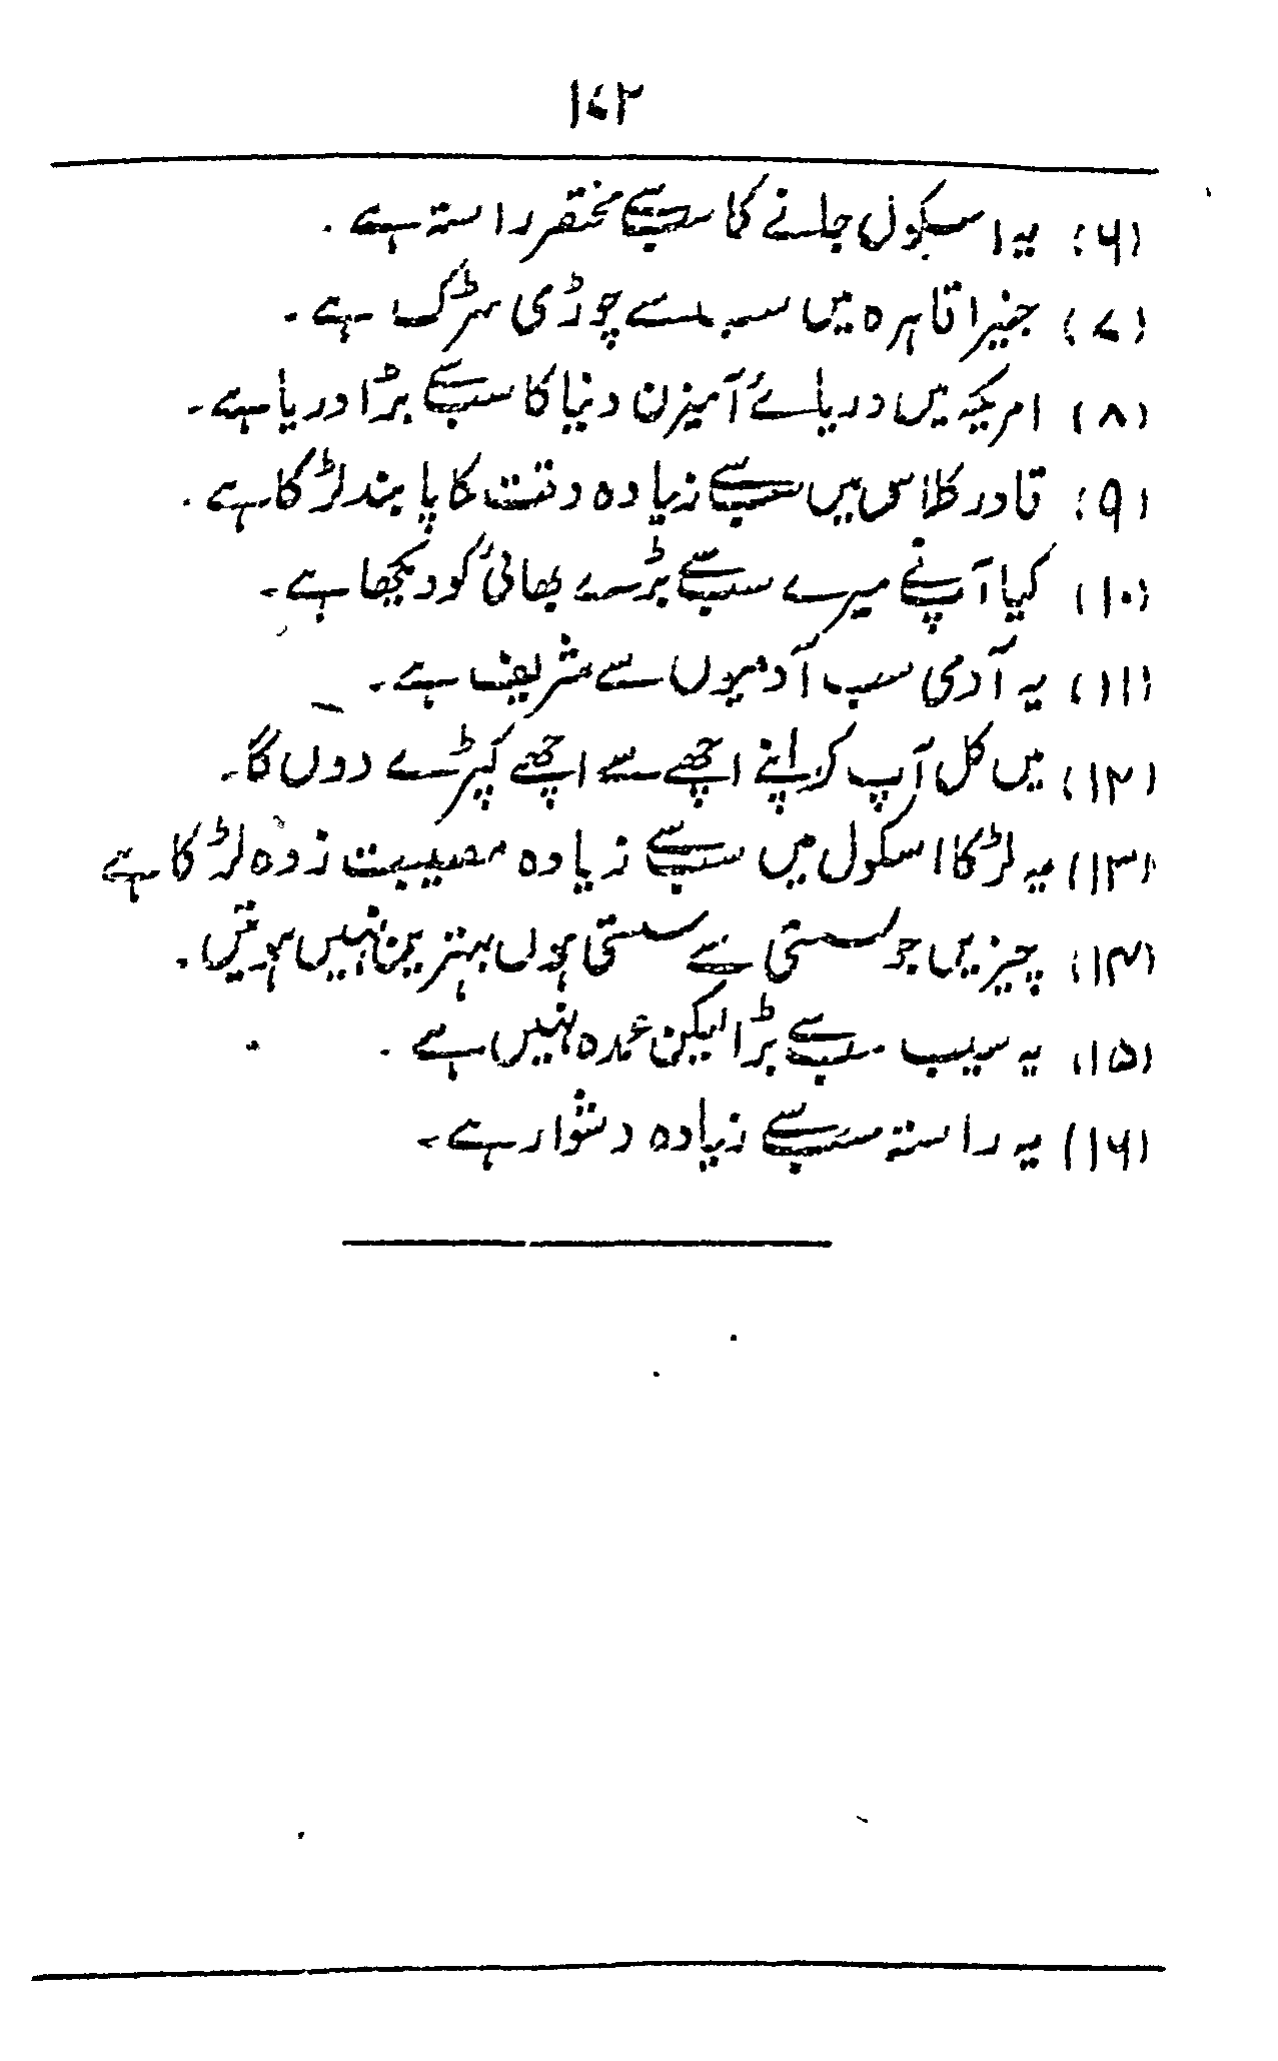 ۱۷۲
(۶) یہ اسکول جانے کا سب سے مختصر راستہ ہے۔
(۷) جنیرا قاہرہ میں سب سے چوڑی سڑک ہے۔
(۸) امریکہ میں دریائے آمیزن دنیا کا سب سے بڑا دریا ہے۔
(۹) قادر کلاس میں سب سے زیادہ وقت کا پابند لڑکا ہے۔
(۱۰) کیا آپ نے میرے سب سے بڑے بھائی کو دیکھا ہے۔
(۱۱) یہ آدمی سب آدمیوں سے شریف ہے۔
(۱۲) میں کل آپ کو اپنے اچھے سے اچھے کپڑے دوں گا۔
(۱۳) یہ لڑکا اسکول میں سب سے زیادہ مصیبت زدہ لڑکا ہے
(۱۴) چیزیں جو سستی سے سستی ہوں بہترین نہیں ہوتیں۔
(۱۵) یہ سیب سب سے بڑا لیکن عمدہ نہیں ہے۔
(۱۶) یہ راستہ سب سے زیادہ دشوار ہے۔